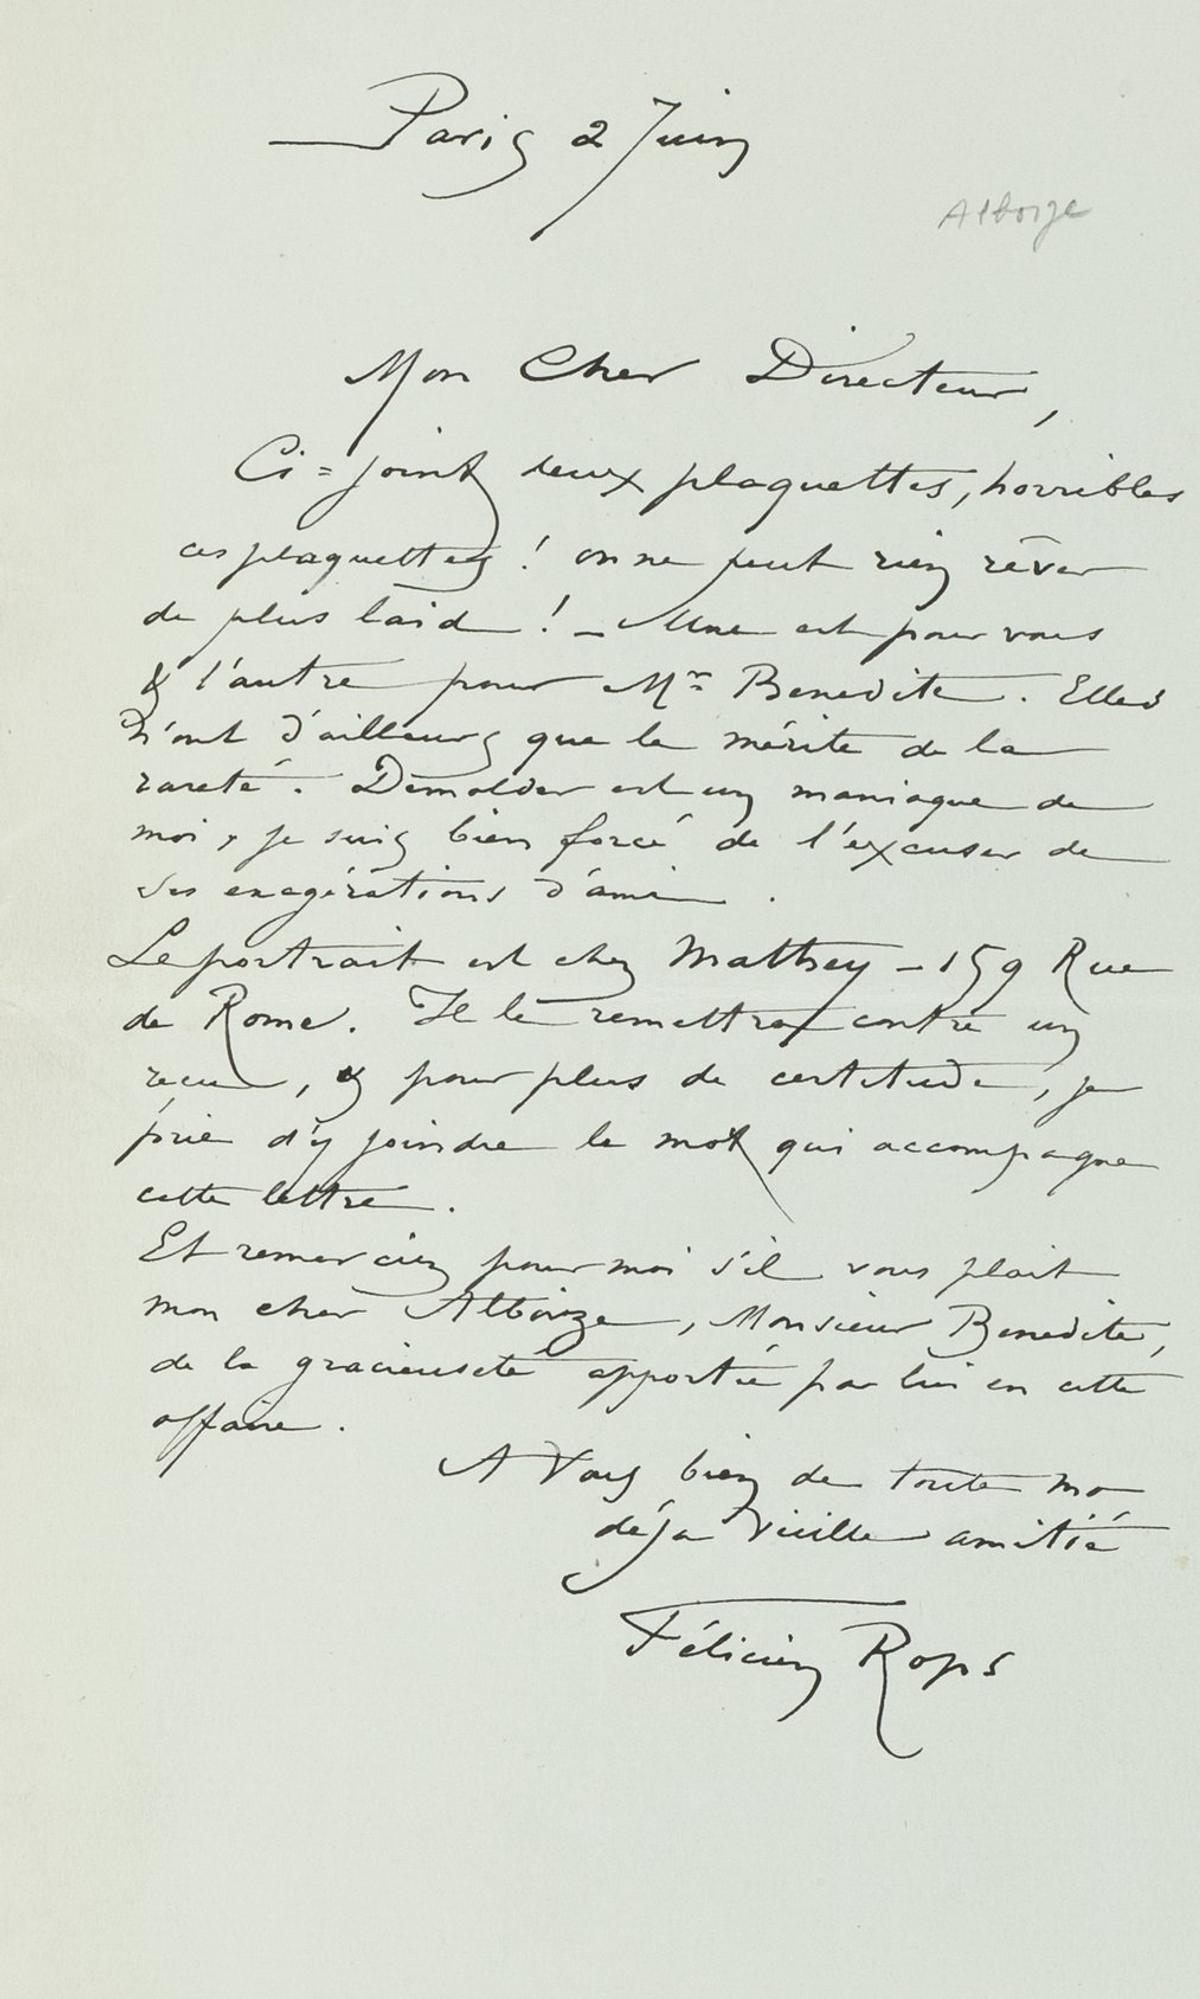 Paris 2 Juin
Alboize
Mon Cher Directeur,
Ci=joint deux plaquettes, horribles
ces plaquettes ! on ne peut rien rêver
de plus laid ! – Une est pour vous
& l'autre pour Mr Benedite. Elles
n'ont d'ailleurs que le mérite de la
rareté. Demolder est un maniaque de
moi, je suis bien forcé de l'excuser de
ses exagérations d'ami.
Le portrait est chez Mathey – 159 Rue
de Rome. Il le remettra contre un
reçu, & pour plus de certitude, je
prie d'y joindre le mot qui accompagne
cette lettre.
Et remerciez pour moi s'il vous plait
mon cher Alboize, Monsieur Benedite,
de la gracieuseté apportée par lui en cette
affaire.
A Vous bien de toute ma
déja vieille amitié
Félicien Rops